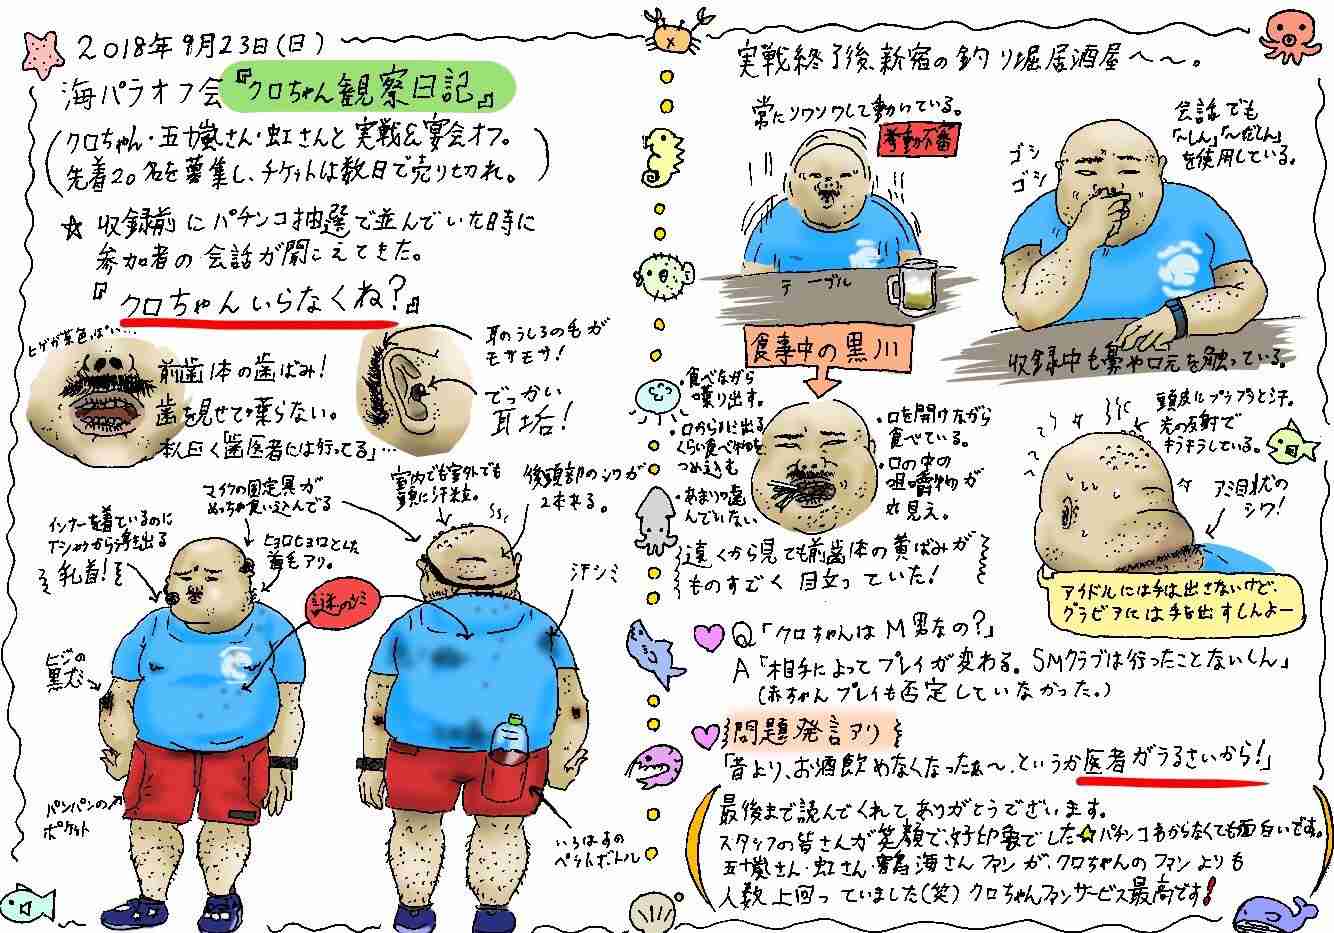 2018年9月23日(日)
海パラオフ会『クロちゃん観察日記』
(クロちゃん・五十嵐さん・虹さんと実戦&宴会オフ。
先着20名を募集し、チケットは数日で売り切れ。)
☆ 収録前にパチンコ抽選で並んでいた時に
参加者の会話が聞こえてきた。
『クロちゃんいらなくね?』
ヒゲが茶色っぽい…
前歯1本の歯ばみ!
歯を見せて喋らない。
本人曰く「歯医者には行ってる」…
耳のうしろの毛が
モサモサ!
でっかい
耳垢!
インナーを着ているのに
Tシャツから浮き出る
乳首!
マイクの固定具が
めっちゃ食い込んでる
ヒョロヒョロとした
毛アリ。
室内でも室外でも
頭に汗粒。
後頭部のシワが
2本ある。
謎のシミ
汗シミ
ヒジの
黒ズミ
パンパンの
ポケット
いろはすの
ペットボトル
実戦終了後、新宿の釣り堀居酒屋へ〜。
常にソワソワして動いている。
挙動不審
テーブル
会話でも
「〜しん」「〜だしん」
を使用している。
ゴシ
ゴシ
収録中も鼻や口元を触っている。
食事中の黒川
・食べながら
喋り出す。
・口からはみ出る
くらい食べ物を
つめ込む
・あまり噛
んでいない
・口を開けながら
食べている。
・口の中の
咀嚼物が
丸見え。
遠くから見ても前歯1本の黄ばみが
ものすごく目立っていた!
頭皮にプツプツと汗。
光の反射で
キラキラしている。
アミ目状の
シワ!
アイドルには手は出さないけど、
グラビアには手を出すしんよー
Q「クロちゃんはM男なの?」
A「相手によってプレイが変わる。SMクラブは行ったことないしん」
(赤ちゃんプレイも否定していなかった。)
問題発言アリ
「昔より、お酒飲めなくなったぁ〜、というか医者がうるさいから!」
(最後まで読んでくれてありがとうございます。
スタッフの皆さんが笑顔で、好印象でした☆パチンコわからなくても面白いです。
五十嵐さん・虹さん・鶴海さんファンが、クロちゃんのファンよりも
人数上回っていました(笑)クロちゃんファンサービス最高です!)